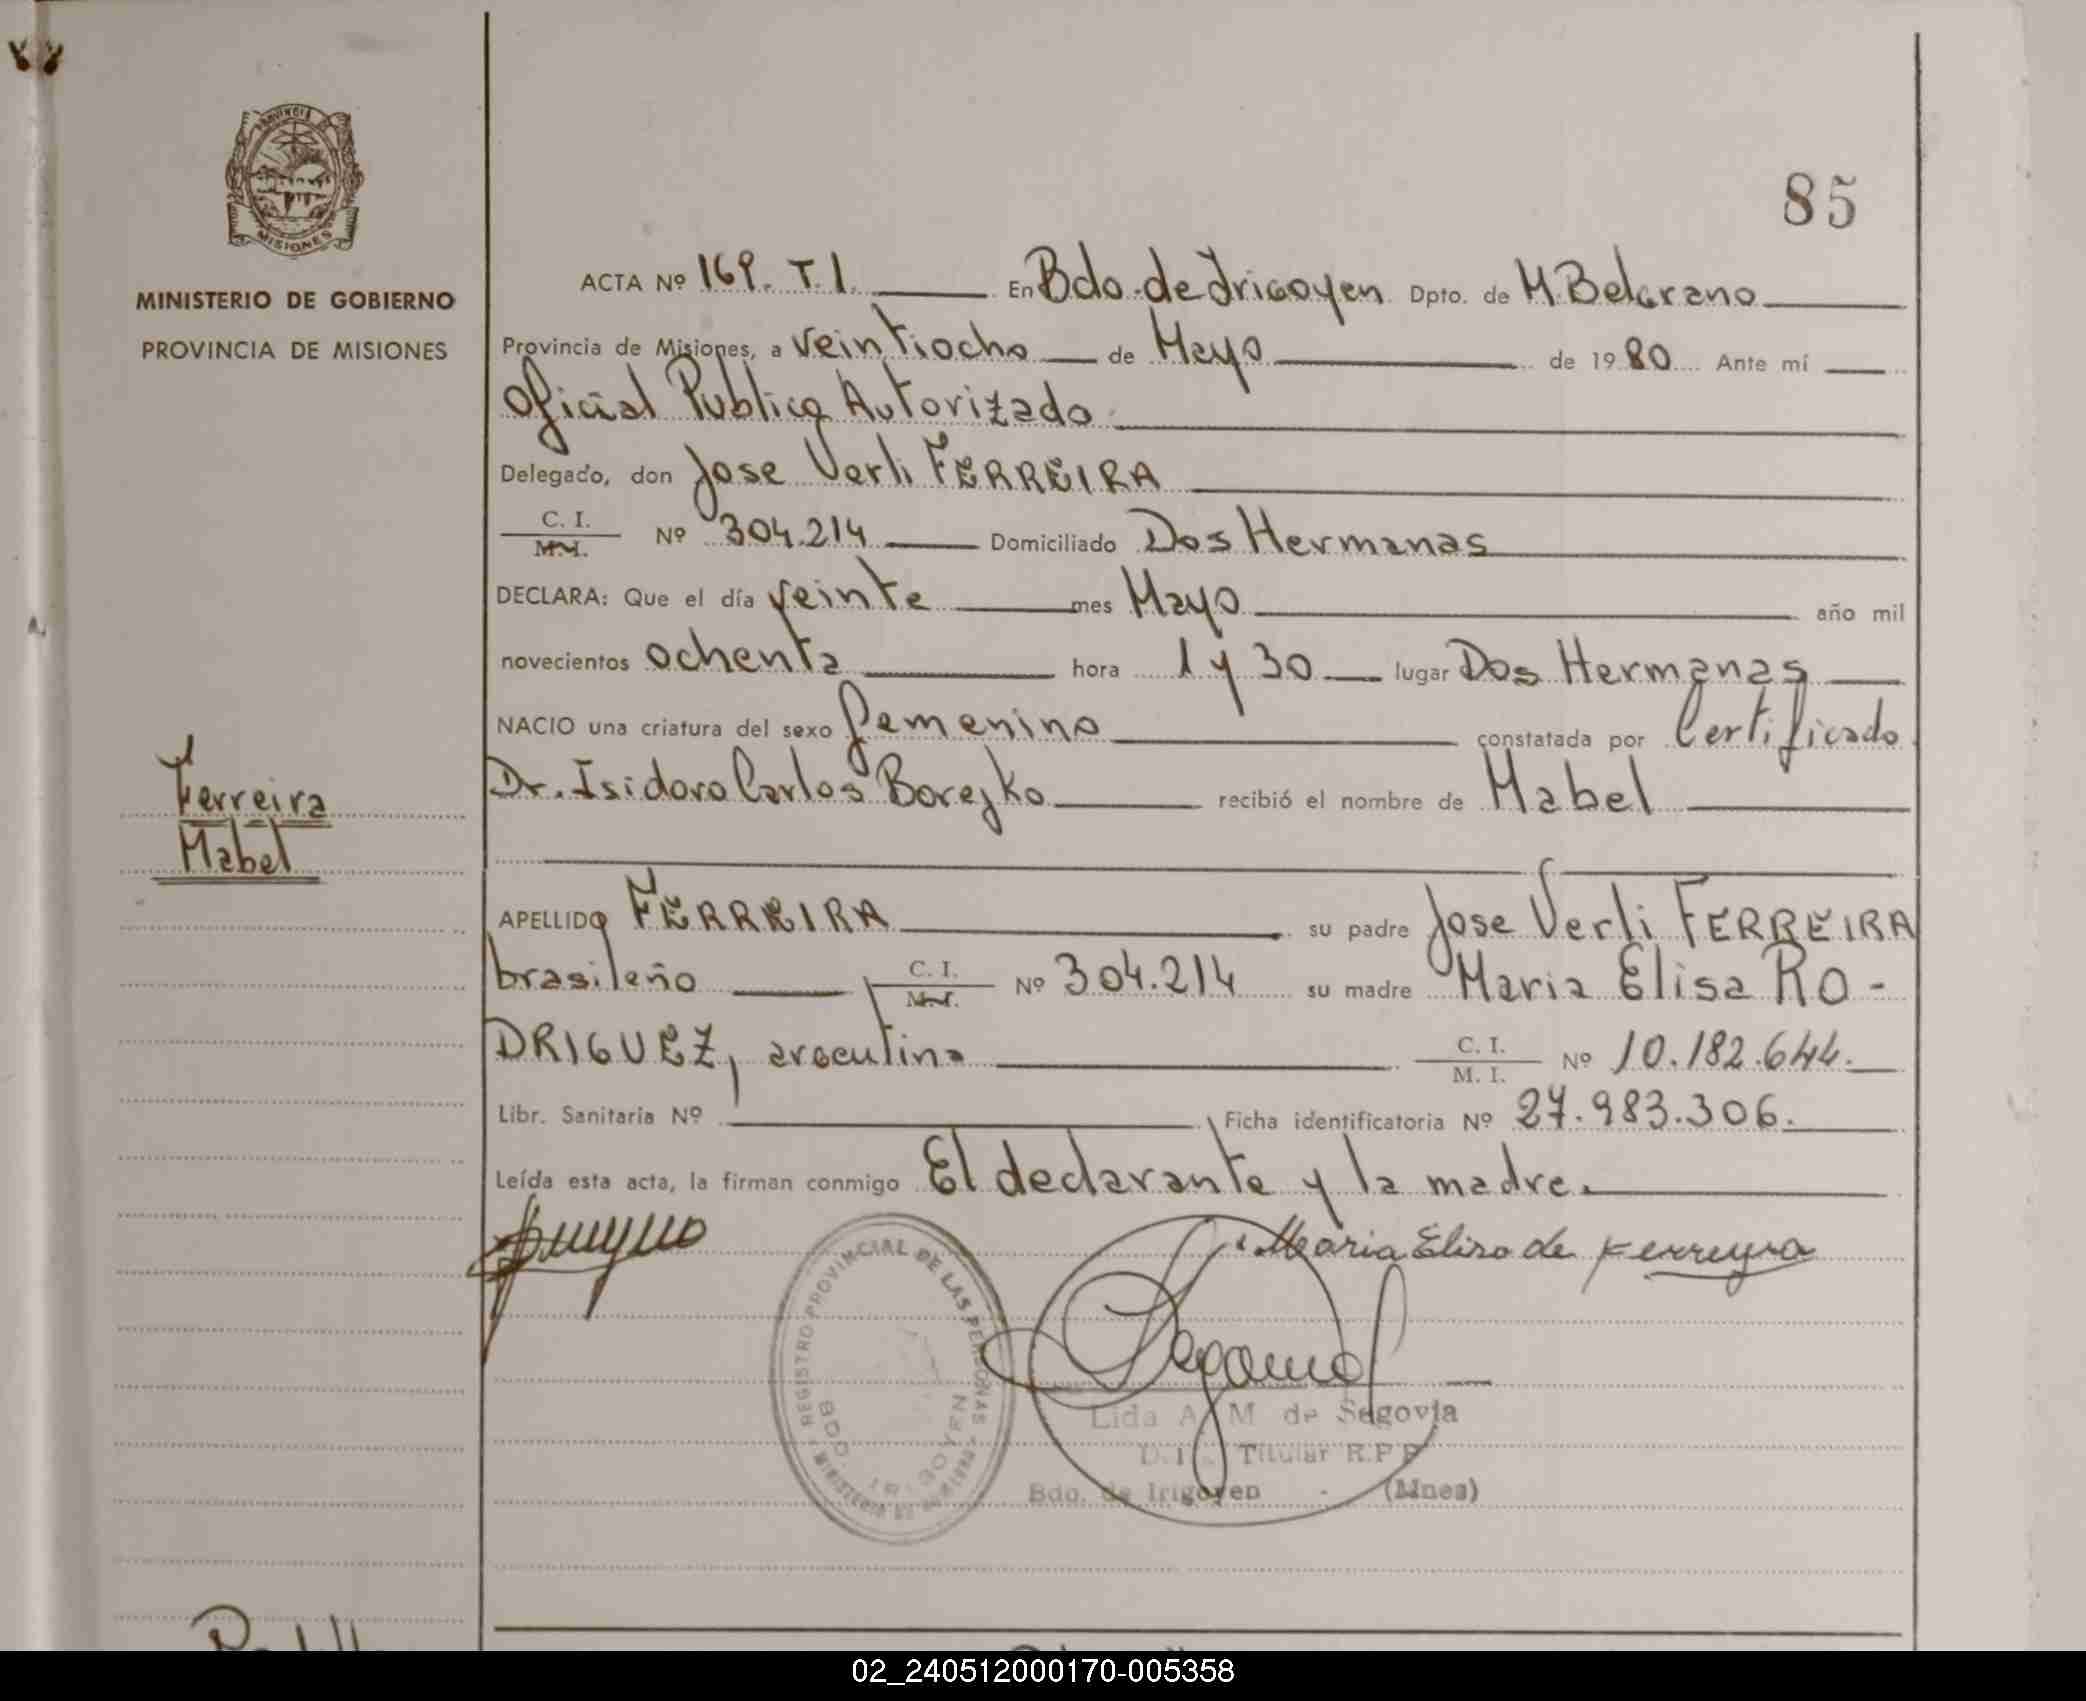 PROVINCIA DE
MISIONES
MINISTERIO DE GOBIERNO
PROVINCIA DE MISIONES
85
ACTA Nº 169. T. I. En Bdo. de Irigoyen Dpto. de M. Belgrano
Provincia de Misiones, a veintiocho de Mayo de 1980 Ante mí
Oficial Publico Autorizado
Delegado, don Jose Verli FERREIRA
C. I.
M. I. Nº 304.214 Domiciliado Dos Hermanas
DECLARA: Que el día veinte mes Mayo año mil
novecientos ochenta hora 1 y 30 lugar Dos Hermanas
NACIO una criatura del sexo femenino constatada por Certificado
Dr. Isidoro Carlos Borejko recibió el nombre de Mabel
Ferreira
Mabel
APELLIDO FERREIRA su padre Jose Verli FERREIRA
brasileño C. I.
M. I. Nº 304.214 su madre Maria Elisa RO-
DRIGUEZ, argentina C. I.
M. I. Nº 10.182.644.
Libr. Sanitaria Nº Ficha identificatoria Nº 27.983.306.
Leída esta acta, la firman conmigo El declarante y la madre.
Maria Elisa de Ferreyra
REGISTRO PROVINCIAL DE LAS PERSONAS
BDO. IRIGOYEN
Lida A. M de Segovia
Titular R.P.P
Bdo. de Irigoyen - (Mnes)
02_240512000170-005358